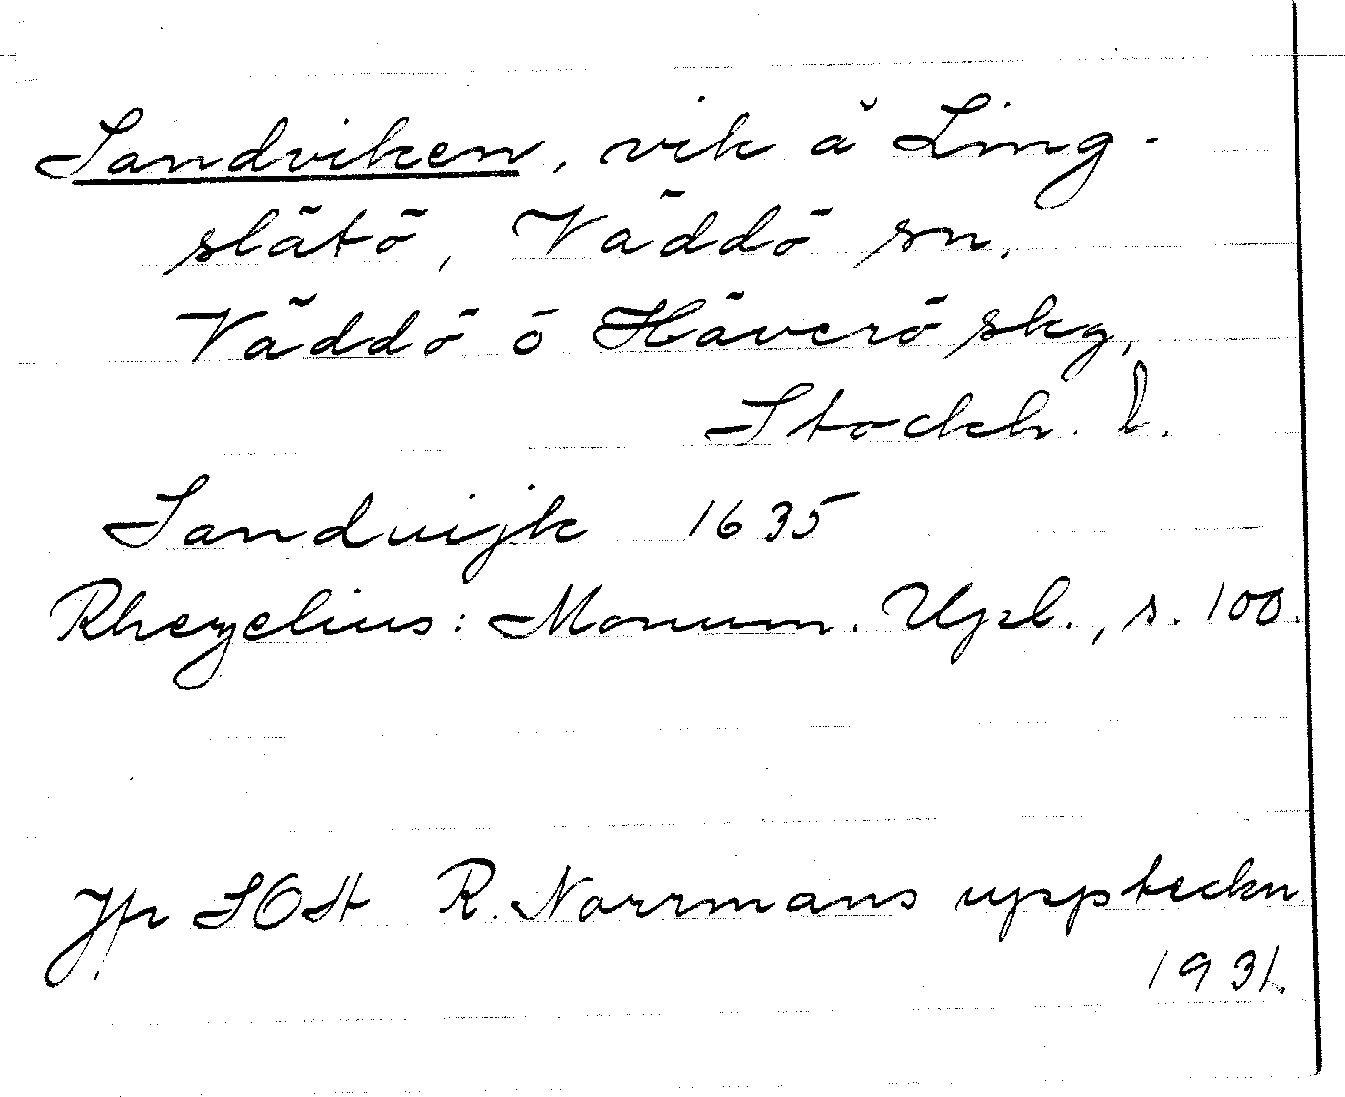 Sandviken, vik å Ling-
slätö, Väddö sn,
Väddö ō Häverö skg,
Stockh. l.
Sandvijk 1635
Rhezelius: Monum. Upl., s. 100.
Jfr SOH R. Norrmans uppteckn
1931.